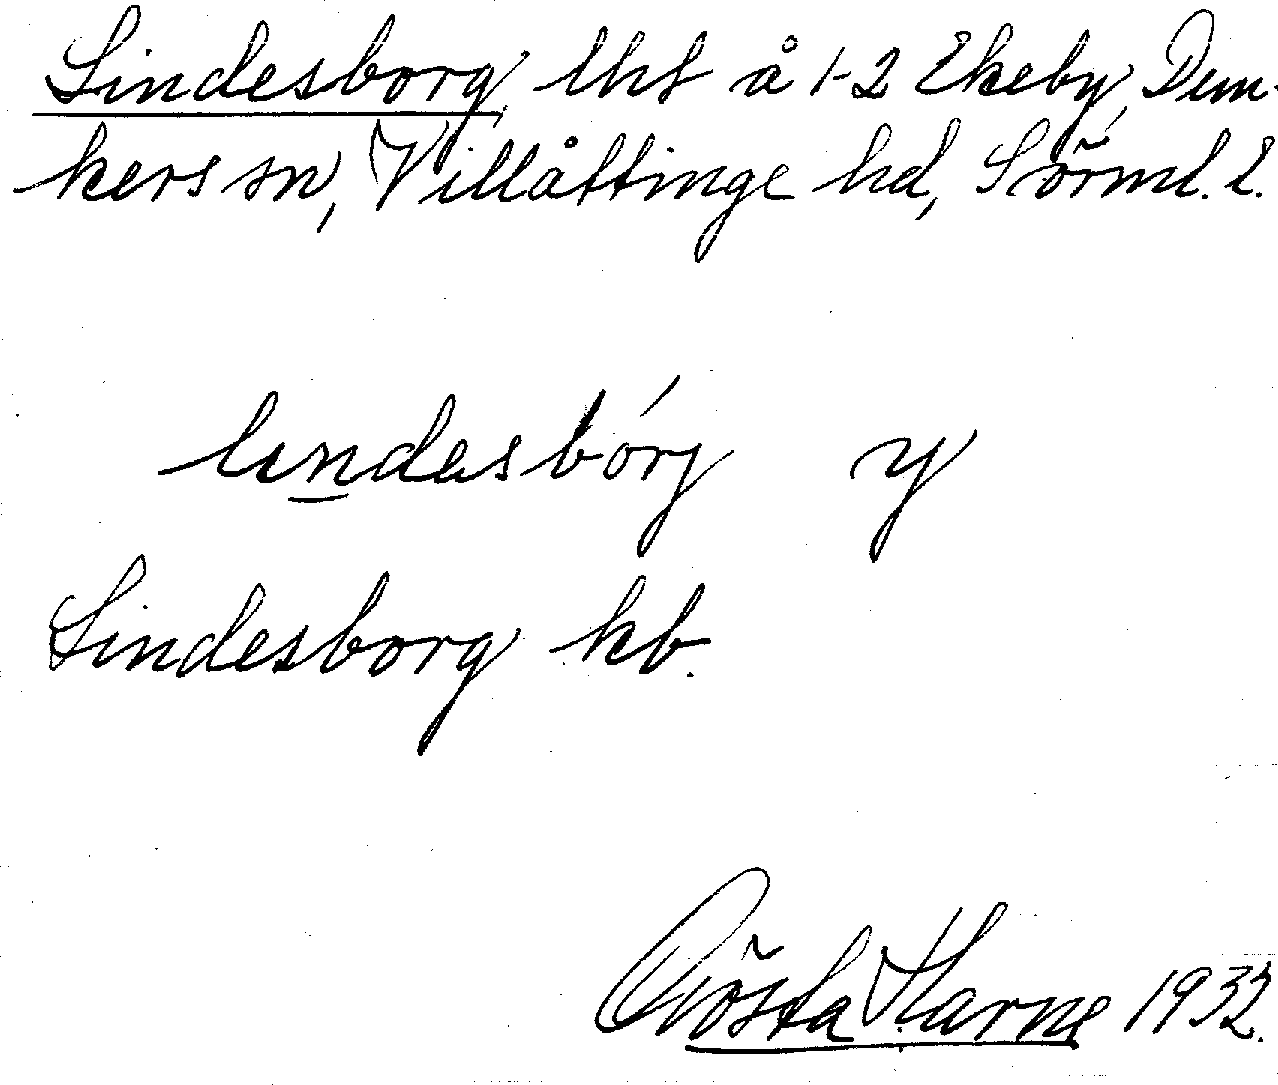 Lindesborg, lht å 1-2 Ekeby, Dun-
kers sn, Villåttinge hd, Sörml. l.
lındasbórj y
Lindesborg kb.
Gösta Harne 1932.